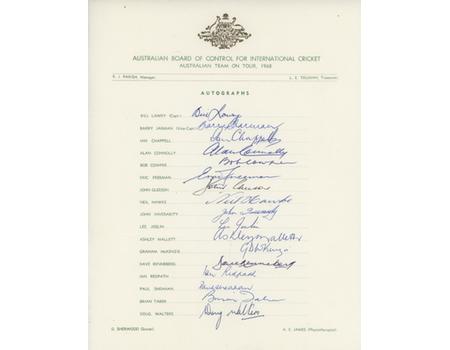 AUSTRALIAN BOARD OF CONTROL FOR INTERNATIONAL CRICKET
AUSTRALIAN TEAM ON TOUR, 1968
R. J. PARISH, Manager. L. E. TRUMAN, Treasurer.
AUTOGRAPHS
BILL LAWRY (Capt.) Bill Lawry
BARRY JARMAN (Vice-Capt.) Barry Jarman
IAN CHAPPELL Ian Chappell
ALAN CONNOLLY Alan Connolly
BOB COWPER Bob Cowper
ERIC FREEMAN Eric Freeman
JOHN GLEESON John Gleeson
NEIL HAWKE Neil Hawke
JOHN INVERARITY John Inverarity
LES JOSLIN Les Joslin
ASHLEY MALLETT Ashley Mallett
GRAHAM McKENZIE G D McKenzie
DAVE RENNEBERG Dave Renneberg
IAN REDPATH Ian Redpath
PAUL SHEAHAN Paul Sheahan
BRIAN TABER Brian Taber
DOUG. WALTERS Doug Walters
D. SHERWOOD (Scorer) A. E. JAMES (Physiotherapist)